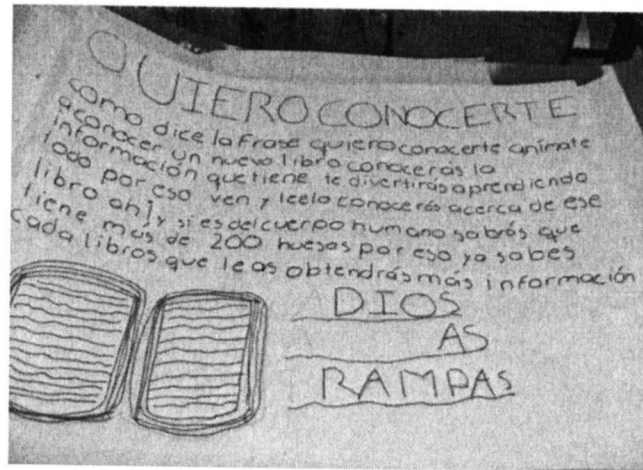 QUIERO CONOCERTE
como dice la frase quiero conocerte anímate
a conocer un nuevo libro conocerás la
información que tiene te divertirás aprendiendo
todo por eso ven y leelo conocerás acerca de ese
libro ah] y si es del cuerpo humano sabrás que
tiene más de 200 huesos por eso ya sabes
cada libros que leas obtendrás más información
ADIOS
AS
RAMPAS